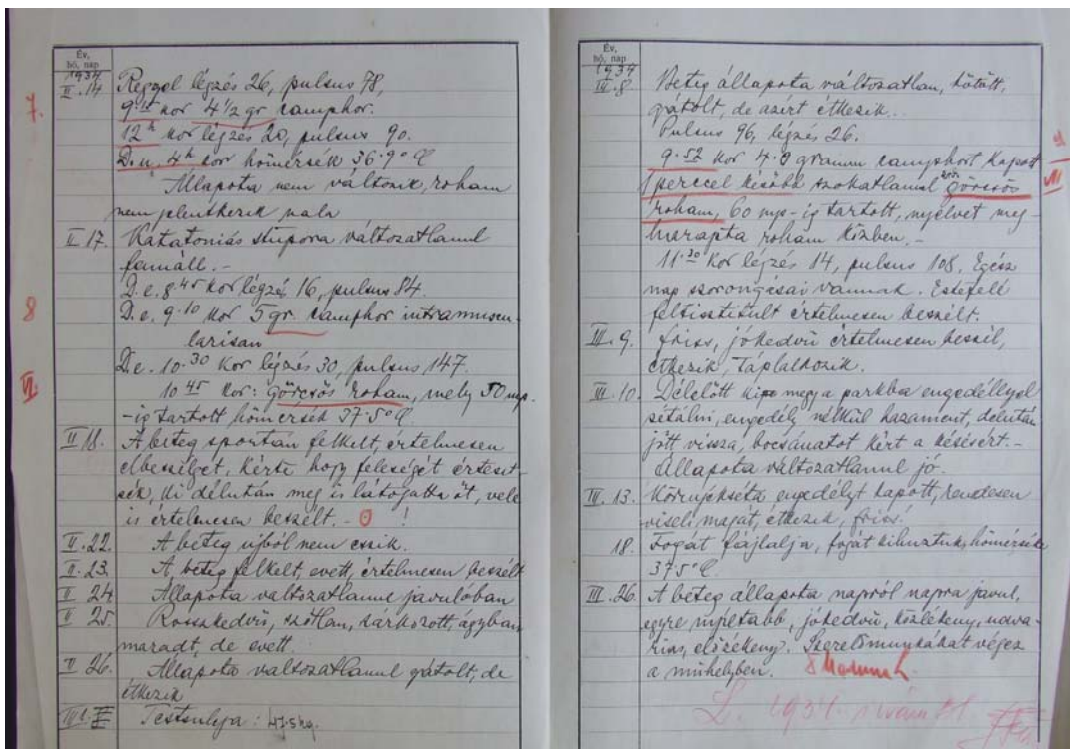 Év,
hó, nap
1934
II. 14 Reggel légzés 26, pulsus 78,
7. 9 15 kor 4 1/2 gr camphor.
12 h kor légzés 20, pulsus 90.
D. u. 4 h kor hőmérsék 36.9° C
Állapota nem változik, roham
nem jelentkezik nála
II 17. Katatoniás stupora változatlanul
fennáll. -
D. e. 8 45 kor légzés 16, pulsus 84.
8 D. e. 9.10 kor 5 gr. camphor intramuscu-
larisan
D. e. 10.30 kor légzés 30, pulsus 147.
10 45 kor: görcsös roham, mely 50 mp.
-ig tartott hőmérsék 37.5° C.
II 18. A beteg spontán felkelt, értelmesen
elbeszélget, kérte hogy feleségét értesit-
sék, ki délután meg is látogatta őt, vele
is értelmesen beszélt. - !
II. 22. A beteg ujból nem eszik.
II. 23. A beteg felkelt, evett, értelmesen beszélt
II 24 Állapota változatlanul javulóban
II 25. Rosszkedvü, szótlan, zárkozott, ágyban
maradt, de evett.
II 26. Állapota változatlanul gátolt, de
étkezik
Testsulya : kg.
Év,
hó, nap
1934
III. 8. Beteg állapota változatlan, kötött,
gátolt, de azért étkezik.
Pulsus 96, légzés 26.
9.52 kor 4.8 gramm camphort kapott
1 perccel később szokatlanul görcsös
roham, 60 mp-ig tartott, nyelvét meg-
harapta roham közben. -
11.30 kor légzés 14, pulsus 108. Egész
nap szorongásai vannak. Estefelé
feltisztitult értelmesen beszélt.
III. 9. friss, jókedvü értelmesen beszél,
étkezik, táplálkozik.
III. 10. Délelőtt megy a parkba engedéllyel
sétálni, engedély nélkül hazament, délután
jött vissza, bocsánatot kért a késésért. -
Állapota változatlanul jó.
III. 13. Környékséta engedélyt kapott, rendesen
viseli magát, étkezik, friss.
18. Fogát fájlalja, fogát kihuztuk, hőmérsék
37.5° C.
III. 26. A beteg állapota napról napra javul,
egyre nyiltabb, jókedvü, közlékeny, udva-
rias, előzékeny. Szerelőmunkákat végez
a mühelyben.
L. 1934